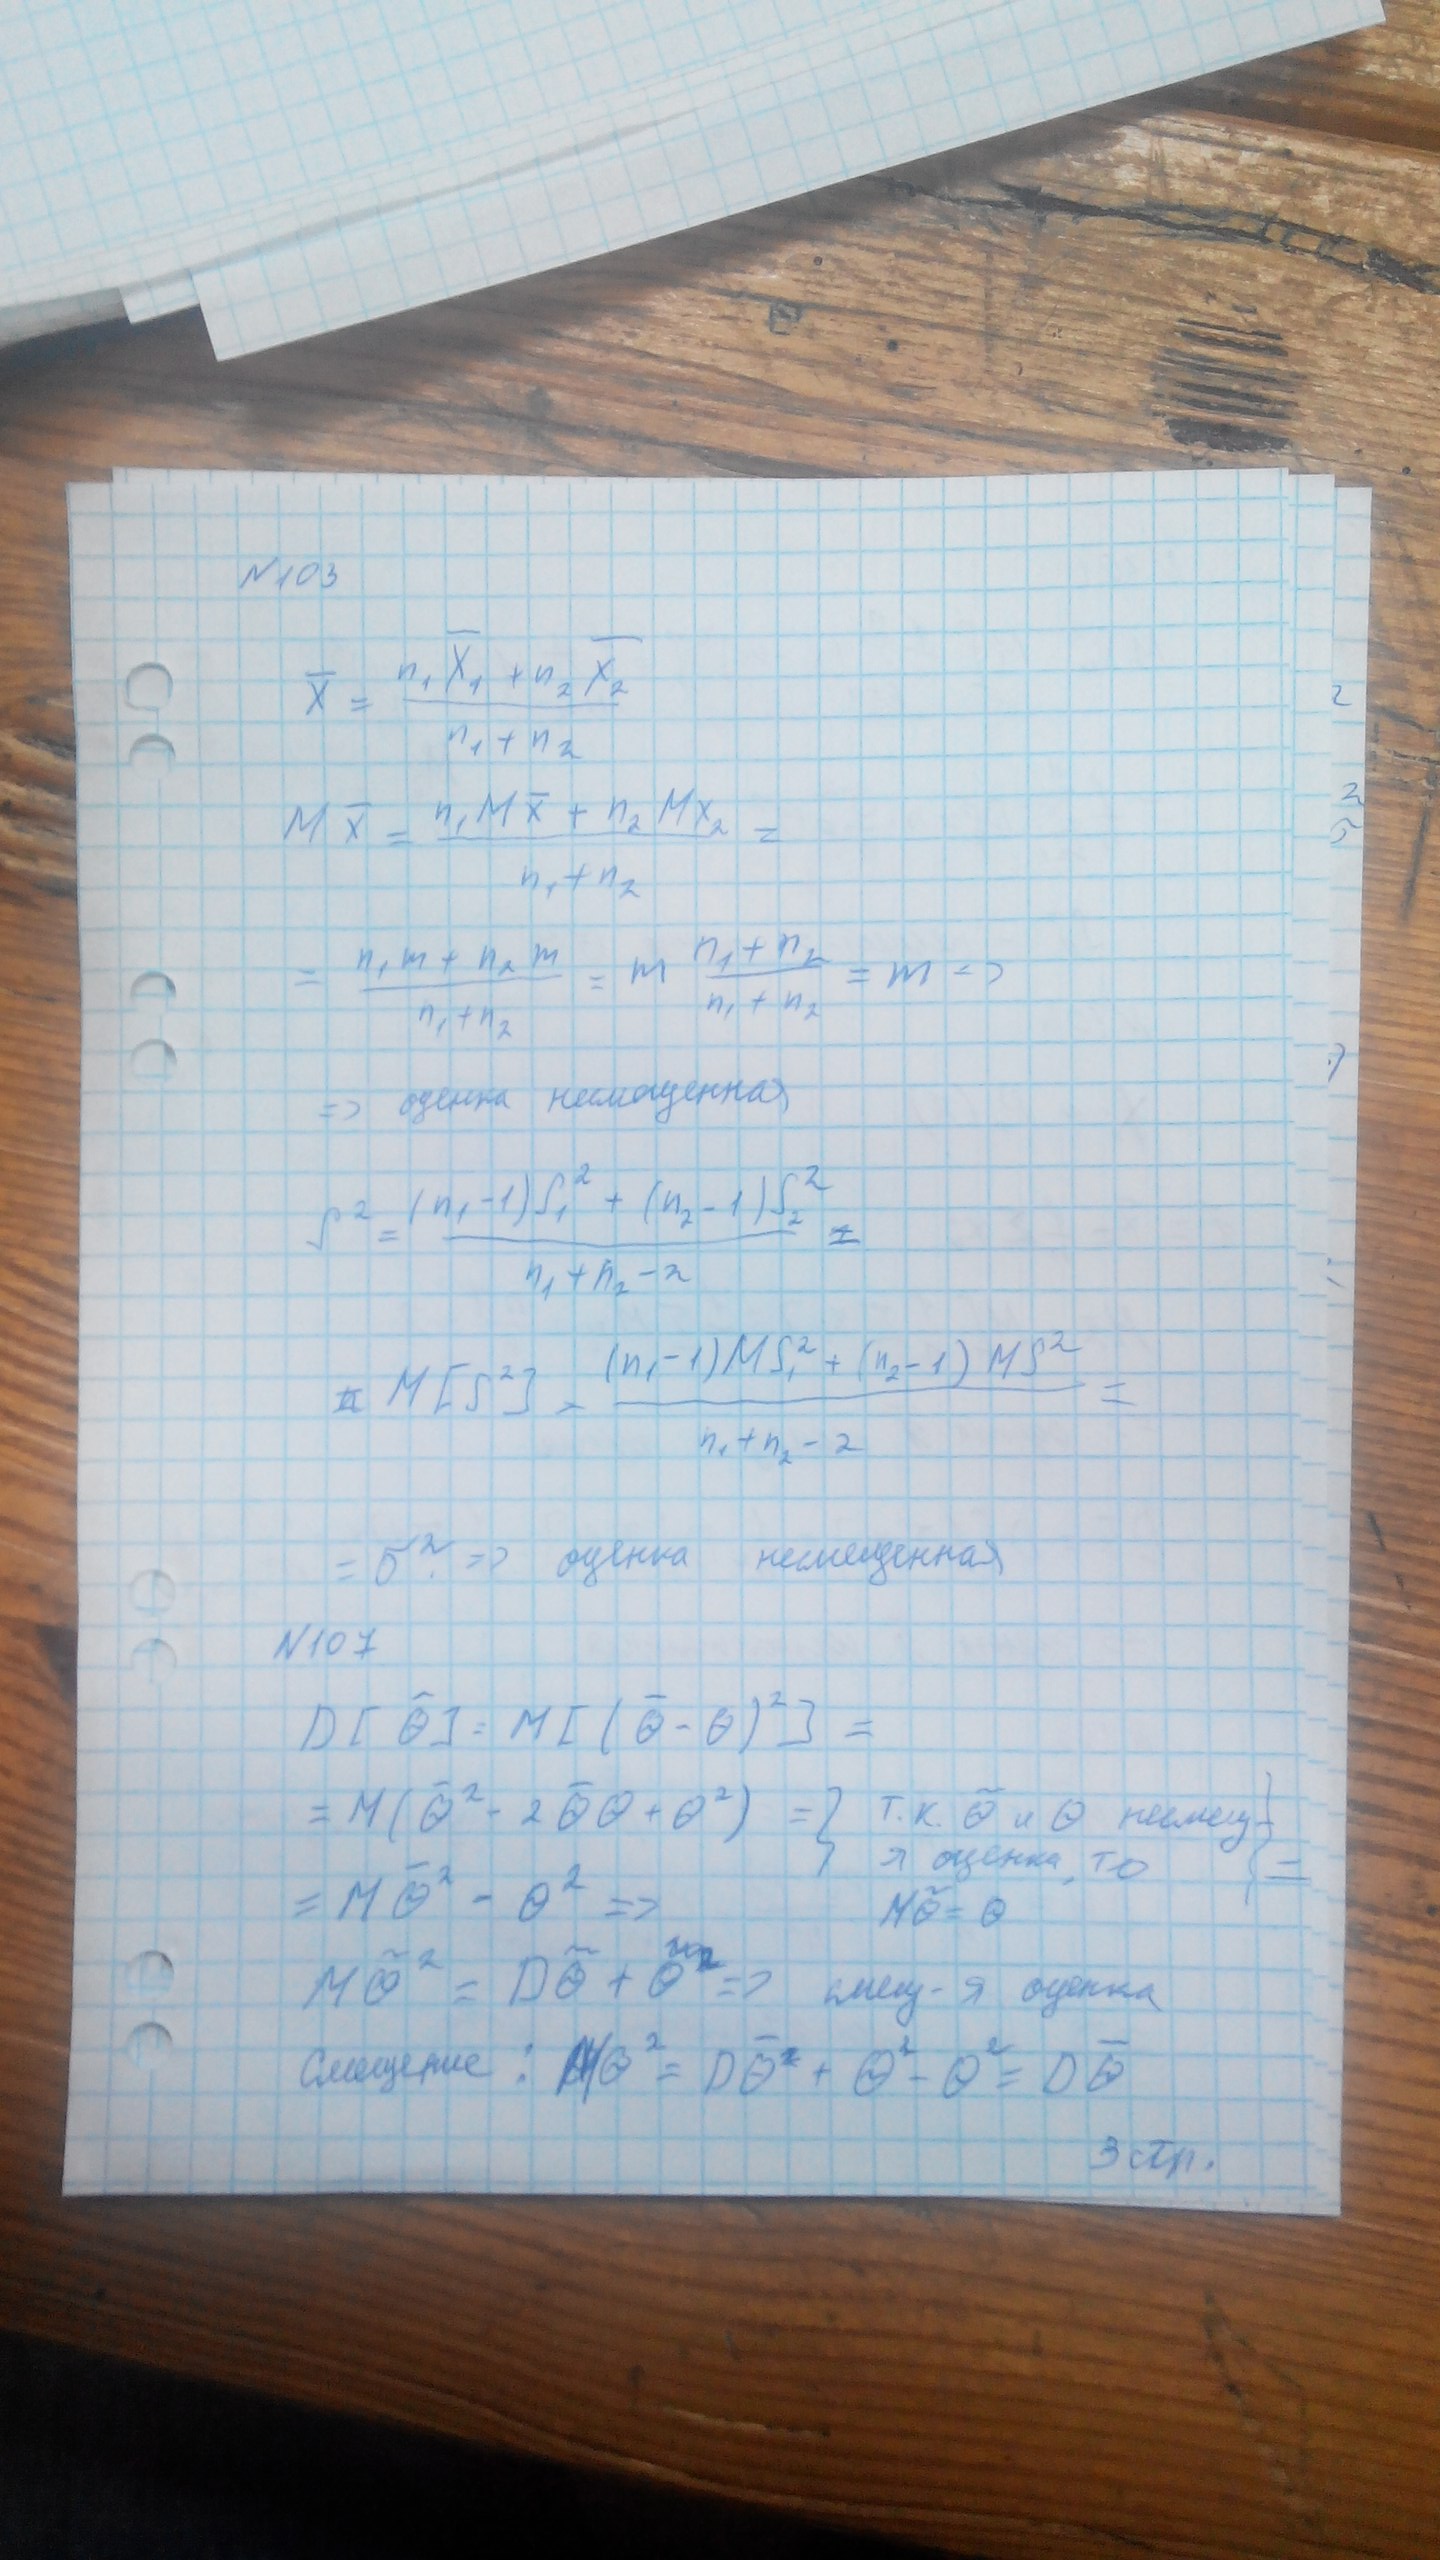 N103
X̄ = (n₁X̄₁ + n₂X̄₂) / (n₁ + n₂)
M x̄ = (n₁Mx̄ + n₂Mx₂) / (n₁ + n₂) =
= (n₁m + n₂m) / (n₁ + n₂) = m (n₁ + n₂) / (n₁ + n₂) = m =>
=> оценка несмещенная
S² = ((n₁-1)S₁² + (n₂-1)S₂²) / (n₁ + n₂ - 2) =
M[S²] = ((n₁-1)MS₁² + (n₂-1)MS²) / (n₁ + n₂ - 2) =
= σ². => оценка несмещенная
N107
D[θ̃] = M[(θ̃ - θ)²] =
= M(θ̃² - 2θ̃θ + θ²) = } т.к. θ̃ и θ несмещ- } =
я оценка, то
Mθ̃ = θ
= Mθ̃² - θ² =>
Mθ̃² = Dθ̃ + θ² => смещ-я оценка
Смещение: θ² = Dθ̃ + θ² - θ² = Dθ̃
3 стр.